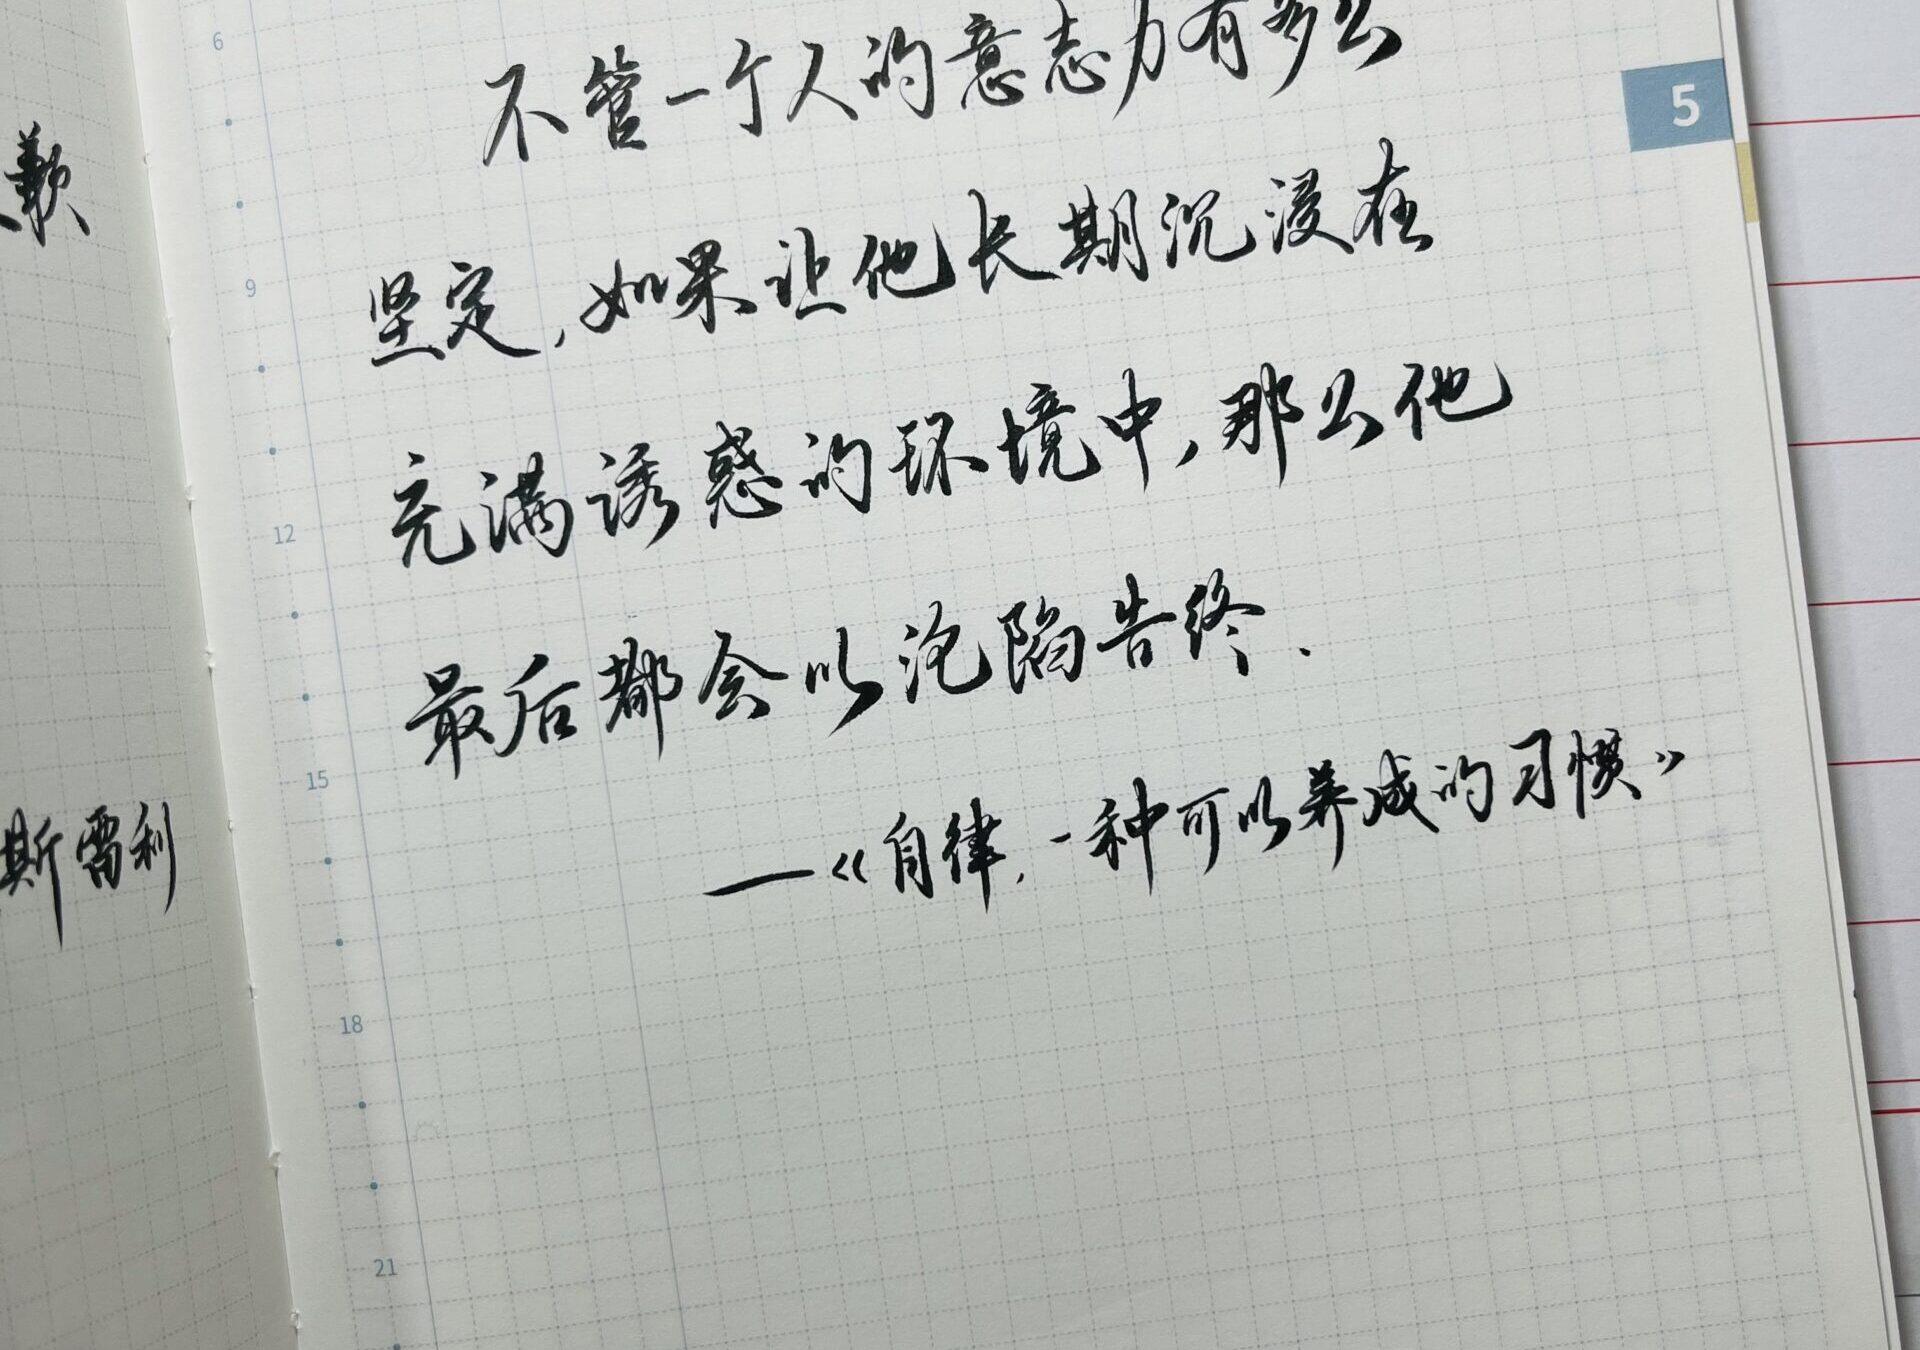 歉
斯雷利
5
6
不管一个人的意志力有多么
9
坚定,如果让他长期沉浸在
12
充满诱惑的环境中,那么他
最后都会以沦陷告终.
15
—《自律,一种可以养成的习惯》
18
21